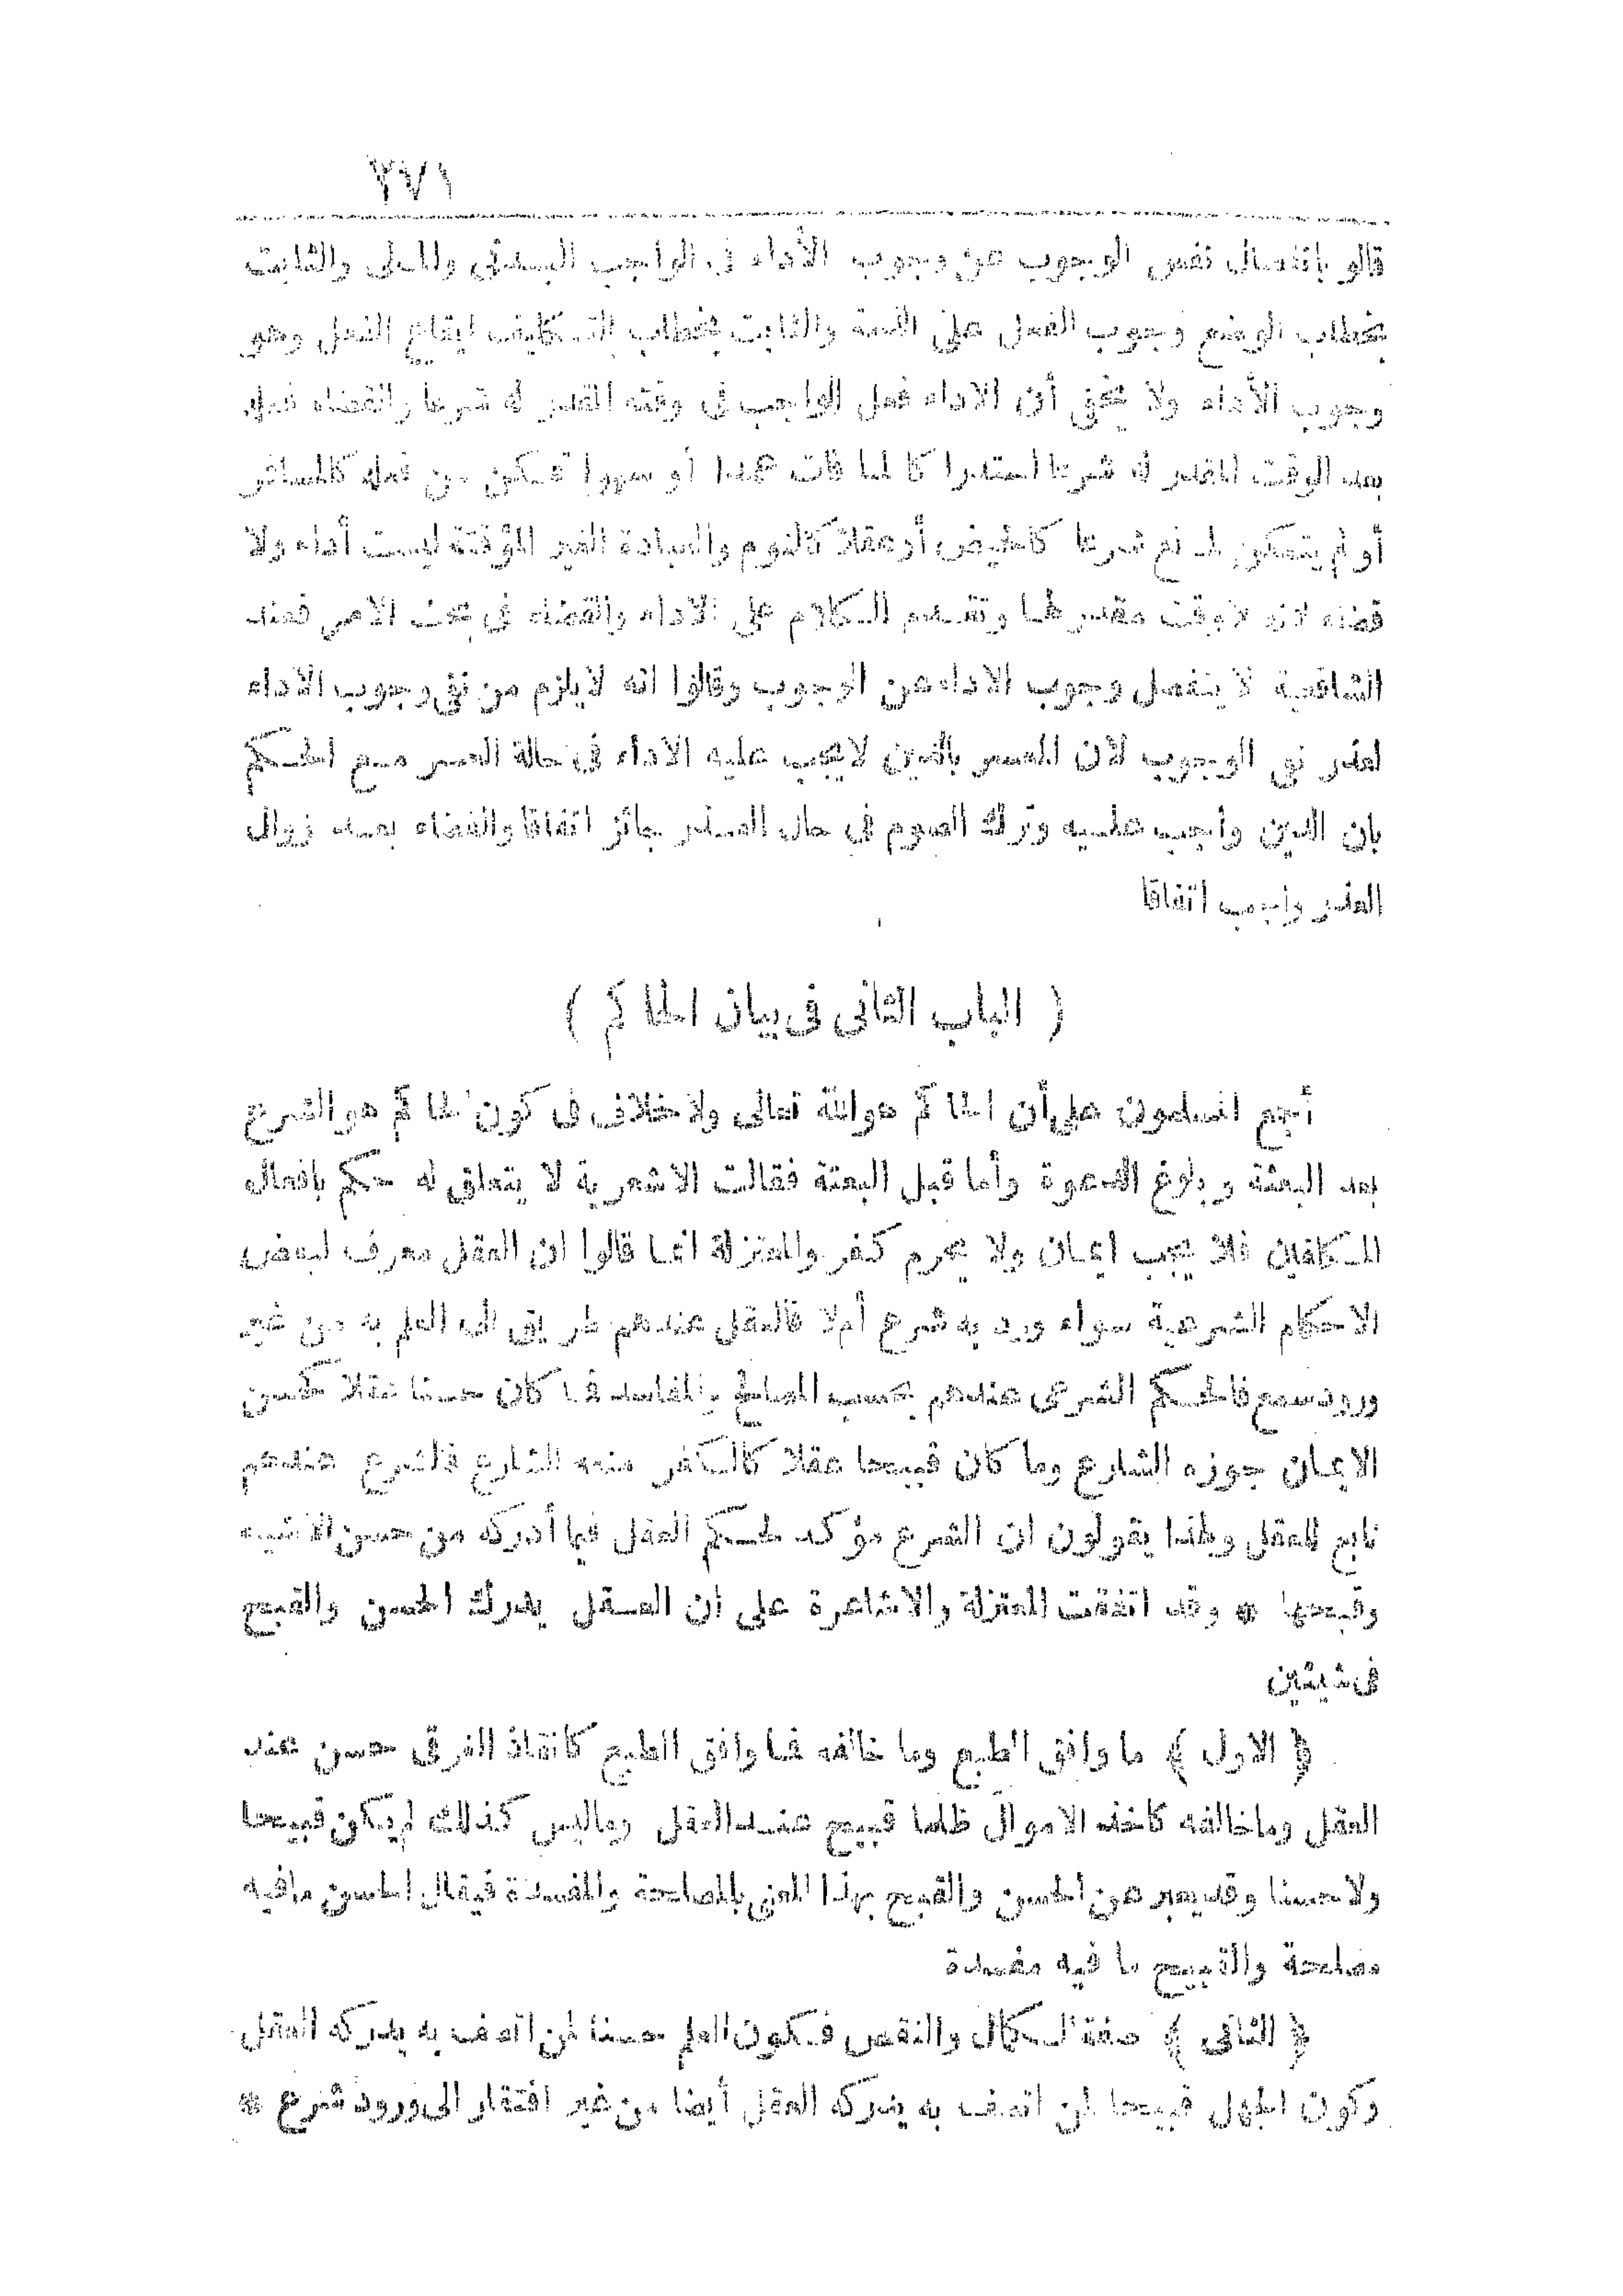 ٢٧١
قالو بانفصال نفس الوجوب عن وجوب الأداء في الواجب البدني والمالى والثابت
بخطاب الوضع وجوب الفعل على الذمة والثابت بخطاب التكليف ايقاع الفعل وهو
وجوب الأداء ولا يخفى أن الاداء فعل الواجب فى وقته المقدر له شرعا والقضاء فعله
بعد الوقت المقدر له شرعا استدراكا لما فات عمدا أو سهوا تمكن من فعله كالمسافر
أو لم يتمكن لمانع شرعا كالحيض أو عقلا كالنوم والعبادة الغير المؤقتة ليست أداء ولا
قضاء لانه لا وقت مقدر لها وتقدم الكلام على الاداء والقضاء فى بحث الامر فعند
الشافعية لا ينفصل وجوب الاداء عن الوجوب وقالوا انه لا يلزم من نفى وجوب الاداء
لعذر نفى الوجوب لان المعسر بالدين لا يجب عليه الاداء فى حالة العسر مع الحكم
بان الدين واجب عليه وترك الصوم فى حال العذر جائز اتفاقا والقضاء بعد زوال
العذر واجب اتفاقا
( الباب الثانى فى بيان الحاكم )
أجمع المسلمون على أن الحاكم هو الله تعالى ولا خلاف فى كون الحاكم هو الشرع
بعد البعثة و بلوغ الدعوة وأما قبل البعثة فقالت الاشعرية لا يتعلق له حكم بافعال
المكلفين فلا يجب ايمان ولا يحرم كفر والمعتزلة انما قالوا ان العقل معرف لبعض
الاحكام الشرعية سواء ورد به شرع أم لا فالعقل عندهم طريق الى العلم به من غير
ورود سمع فالحكم الشرعى عندهم بحسب المصالح والمفاسد فما كان حسنا عقلا كحسن
الايمان جوزه الشارع وما كان قبيحا عقلا كالكفر منعه الشارع فالشرع عندهم
تابع للعقل ولهذا يقولون ان الشرع مؤكد لحكم العقل فيما أدركه من حسن الاشياء
وقبحها * وقد اتفقت المعتزلة والاشاعرة على ان العقل يدرك الحسن والقبح
فى شيئين
﴿ الاول ﴾ ما وافق الطبع وما خالفه فما وافق الطبع كانقاذ الغرقى حسن عند
العقل وما خالفه كاخذ الاموال ظلما قبيح عند العقل وما ليس كذلك لم يكن قبيحا
ولا حسنا وقد يعبر عن الحسن والقبح بهذا المعنى بالمصلحة والمفسدة فيقال الحسن ما فيه
مصلحة والقبيح ما فيه مفسدة
﴿ الثانى ﴾ صفة الكمال والنقص فكون العلم حسنا لمن اتصف به يدركه العقل
وكون الجهل قبيحا لمن اتصف به يدركه العقل أيضا من غير افتقار الى ورود شرع *